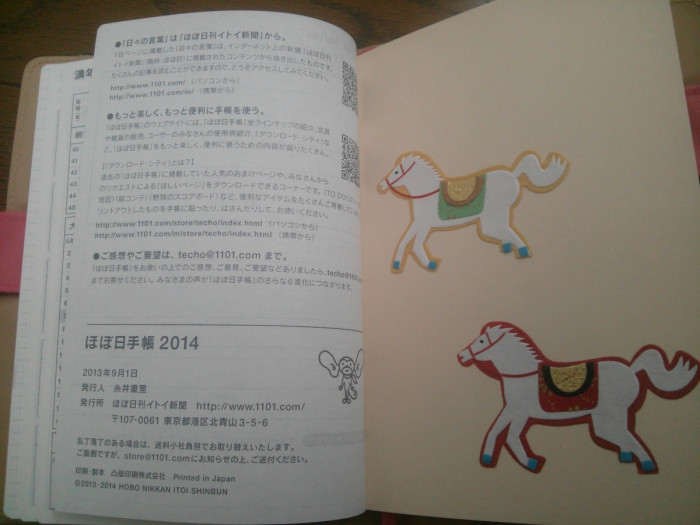 ●「日々の言葉」は「ほぼ日刊イトイ新聞」から。
1日ページに掲載した「日々の言葉」は、インターネット上の新聞「ほぼ日刊
イトイ新聞」(略称・ほぼ日)に掲載されたコンテンツから抜き出したものです。
たくさんの記事を読むことができますので、どうぞアクセスしてみてください。
http://www.1101.com/ (パソコンから)
http://www.1101.com/m/ (携帯から)
●もっと楽しく、もっと便利に手帳を使う。
「ほぼ日手帳」のウェブサイトには、「ほぼ日手帳」全ラインナップの紹介、文具
や雑貨の販売、ユーザーのみなさんの使用例紹介、「ダウンロード・シティ」な
ど、「ほぼ日手帳」を楽しく、便利に使うための内容が盛りだくさん。
【「ダウンロード・シティ」とは?】
過去の「ほぼ日手帳」に掲載していた人気のおまけページや、みなさんから
のリクエストによる「ほしいページ」をダウンロードできるコーナーです。(TO DO
地図)(絵コンテ)(野球のスコアボード)など、便利なアイテムをたくさんご用意してい
リントアウトしたものを手帳に貼ったり、はさんだりして、お使いください。
http://www.1101.com/store/techo/index.html (パソコンから)
http://www.1101.com/m/store/techo/index.html (携帯から)
●ご感想やご要望は、techo@1101.com まで。
「ほぼ日手帳」をお使いの上でのご感想、ご意見、ご要望などありましたら、techo@1101.com
までお寄せください。みなさまの声が「ほぼ日手帳」のさらなる進化につながります。
ほぼ日手帳 2014
2013年9月1日
発行人 糸井重里
発行所 ほぼ日刊イトイ新聞 http://www.1101.com/
〒107-0061 東京都港区北青山3-5-6
乱丁落丁のある場合は、送料小社負担でお取り替えいたします。
ご面倒ですが、store@1101.comにお知らせの上、ご送付ください。
印刷・製本 凸版印刷株式会社 Printed in Japan
©2013-2014 HOBO NIKKAN ITOI SHINBUN
満年
40
41
42
43
44
45